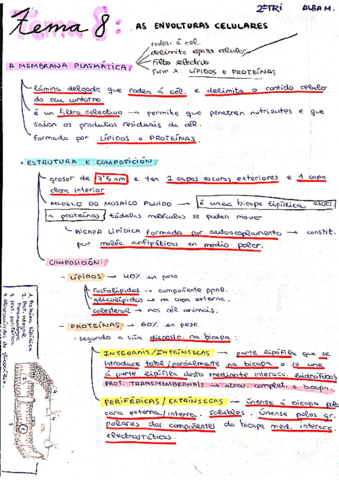 2ºTRI ALBA M.
Tema 8: AS ENVOLTURAS CELULARES
rodea á cél.
delimita espazo celular
filtro selectivo
form x. LÍPIDOS E PROTEÍNAS
A MEMBRANA PLASMÁTICA:
Lámina delgada que rodea á cél. e delimita o contido celular
do seu contorno
É un filtro selectivo → permite que penetren nutrientes e que
saian os produtos residuais da cél.
Formada por LÍPIDOS e PROTEÍNAS.
• ESTRUTURA E COMPOSICIÓN
grosor de 7'5 nm e ten 2 capas escuras exteriores e 1 capa
clara interior
MODELO DO MOSAICO FLUIDO → É unha bicapa lipídica
a proteínas; tódalas moléculas se poden mover
BICAPA LIPÍDICA formada por autoacoplamento → constit.
por moléc. anfipáticas en medio polar.
COMPOSICIÓN:
- LÍPIDOS → 40% en peso
fosfolípidos → compoñente ppal.
glicolípidos → na capa externa.
colesterol → nas cél. animais.
- PROTEÍNAS → 60% en peso
• segundo a súa disposic. na bicapa:
INTEGRAIS/INTRÍNSECAS → parte lipófila que se
introduce total/parcialmente na bicapa e se une
á parte lipófila desta mediante interacc. hidrófobas
PROT. TRANSMEMBRANAIS → atrav. complet. a bicapa.
PERIFÉRICAS / EXTRÍNSECAS → únense á bicapa pola
cara externa/interna. solubles. Únense polos gr.
polares dos compoñentes da bicapa med. interacc.
electrostáticas.